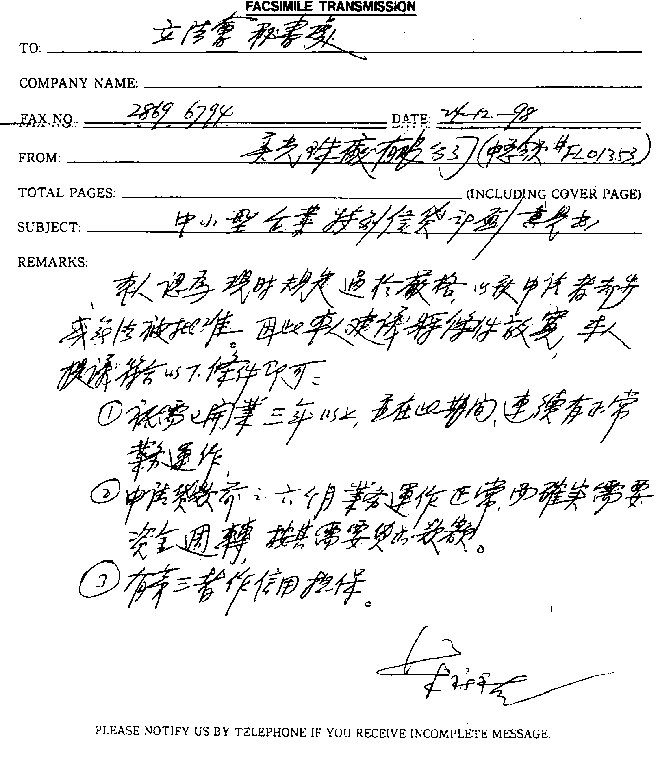 FACSIMILE TRANSMISSION
TO: 立法會 秘書處
COMPANY NAME:
FAX NO. 2869 6794 DATE: 24-12-98
FROM:
TOTAL PAGES: (INCLUDING COVER PAGE)
SUBJECT: 中小型企業特別信貸計劃
REMARKS:
本人認為現時規定過於嚴格, 以致申請者
無法被批准。因此本人建議將條件放寬, 本人
提議符合以下條件即可:
① 祇需已開業三年以上, 並在此期間, 連續有正常
業務運作,
② 申請貸款前之六個月業務運作正常, 而確實需要
資金週轉, 按其需要貸出款額。
③ 有第三者作信用担保。
PLEASE NOTIFY US BY TELEPHONE IF YOU RECEIVE INCOMPLETE MESSAGE.